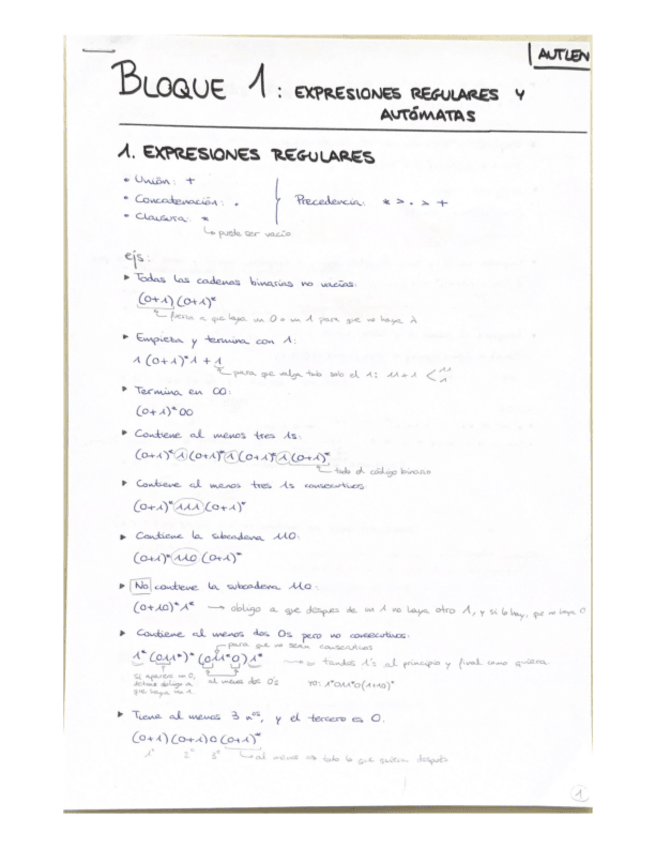 AUTLEN
BLOQUE 1: EXPRESIONES REGULARES Y
AUTÓMATAS
1. EXPRESIONES REGULARES
• Unión: +
• Concatenación: .
• Clausura: *
Precedencia: * > . > +
↳ puede ser vacío
ejs:
▸ Todas las cadenas binarias no vacías:
(0+1)(0+1)*
fuerza a que haya un 0 o un 1 para que no haya λ
▸ Empieza y termina con 1:
1(0+1)*1+1
para que valga solo el 1: 11+1 < 11
1
▸ Termina en 00:
(0+1)*00
▸ Contiene al menos tres 1s:
(0+1)*1(0+1)*1(0+1)*1(0+1)*
todo el código binario
▸ Contiene al menos tres 1s consecutivos:
(0+1)*111(0+1)*
▸ Contiene la subcadena 110:
(0+1)*110(0+1)*
▸ No contiene la subcadena 110:
(0+10)*1* → obligo a que después de un 1 no haya otro 1, y si lo hay, que no haya 0
▸ Contiene al menos dos 0s pero no consecutivos:
para que no sean consecutivos
1*(011*)*(011*0)1* → tantos 1's al principio y final como quiera
Si aparece un 0,
obligo a
que haya un 1.
al menos dos 0's
▸ Tiene al menos 3 nos, y el tercero es 0.
(0+1)(0+1)0(0+1)*
1º 2º 3º
al menos ⇒ todo lo que quieran después
1